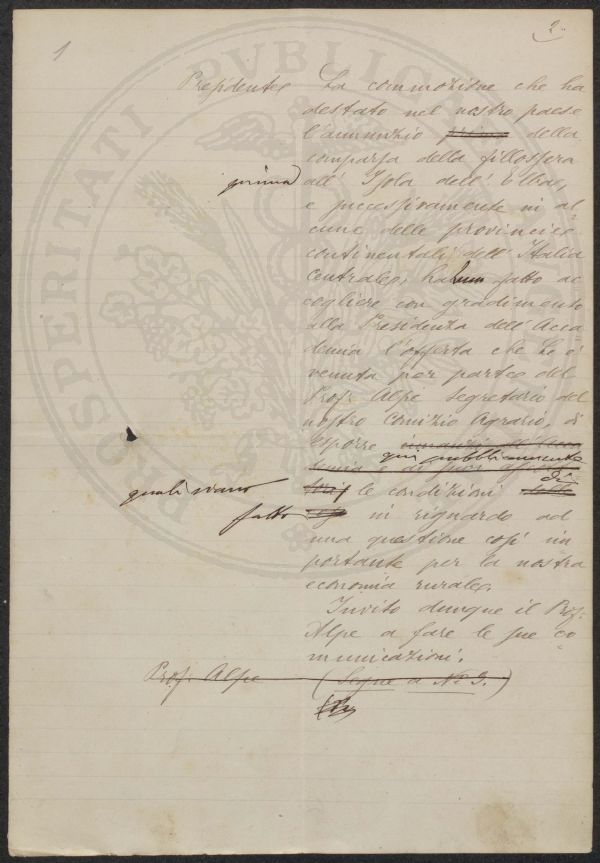 1
2.
Presidente La commozione che ha
destato nel nostro paese
l'annunzio prima della
comparsa della fillossera
prima all' Isola dell' Elba,
e successivamente in al-
cune delle provincie
continentali dell' Italia
Centrale, hanno fatto ac
cogliere con gradimento
alla Presidenza dell' Acca
demia l'offerta che Le è
venuta per parte del
Prof. Alpe Segretario del
nostro Comizio Agrario, di
esporre
qui pubblicamente
quali siano le condizioni di
fatto in riguardo ad
una questione così im
portante per la nostra
economia rurale.
Invito dunque il Prof.
Alpe a fare le sue co
municazioni.
Prof. Alpe (Segue a N. 3.)
PROSPERITATI PVBLICAE